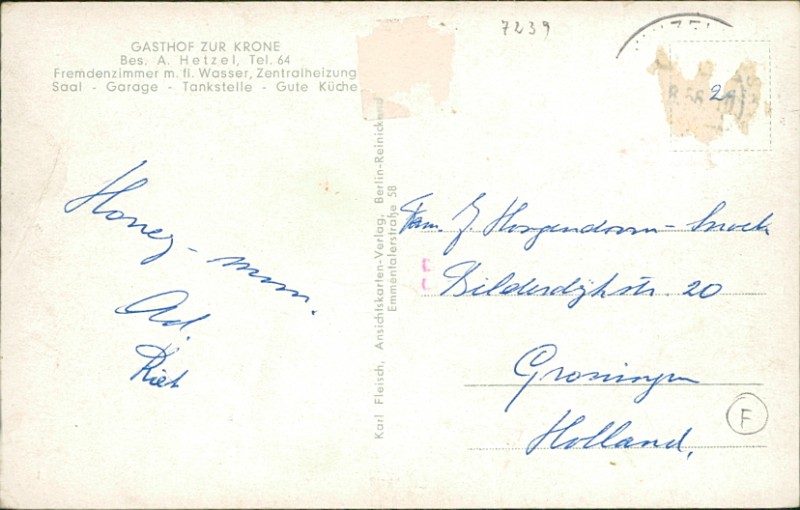 GASTHOF ZUR KRONE
Bes. A. Hetzel, Tel. 64
Fremdenzimmer m. fl. Wasser, Zentralheizung
Saal - Garage - Tankstelle - Gute Küche
7239
2
Honey - moon.
Ad.
Riet
Karl Fleisch, Ansichtskarten-Verlag, Berlin-Reinickend
Emmentalerstraße 58
Fam. J. Hoogendoorn - Snoek
Bilderdijkstr. 20
Groningen
Holland.
F